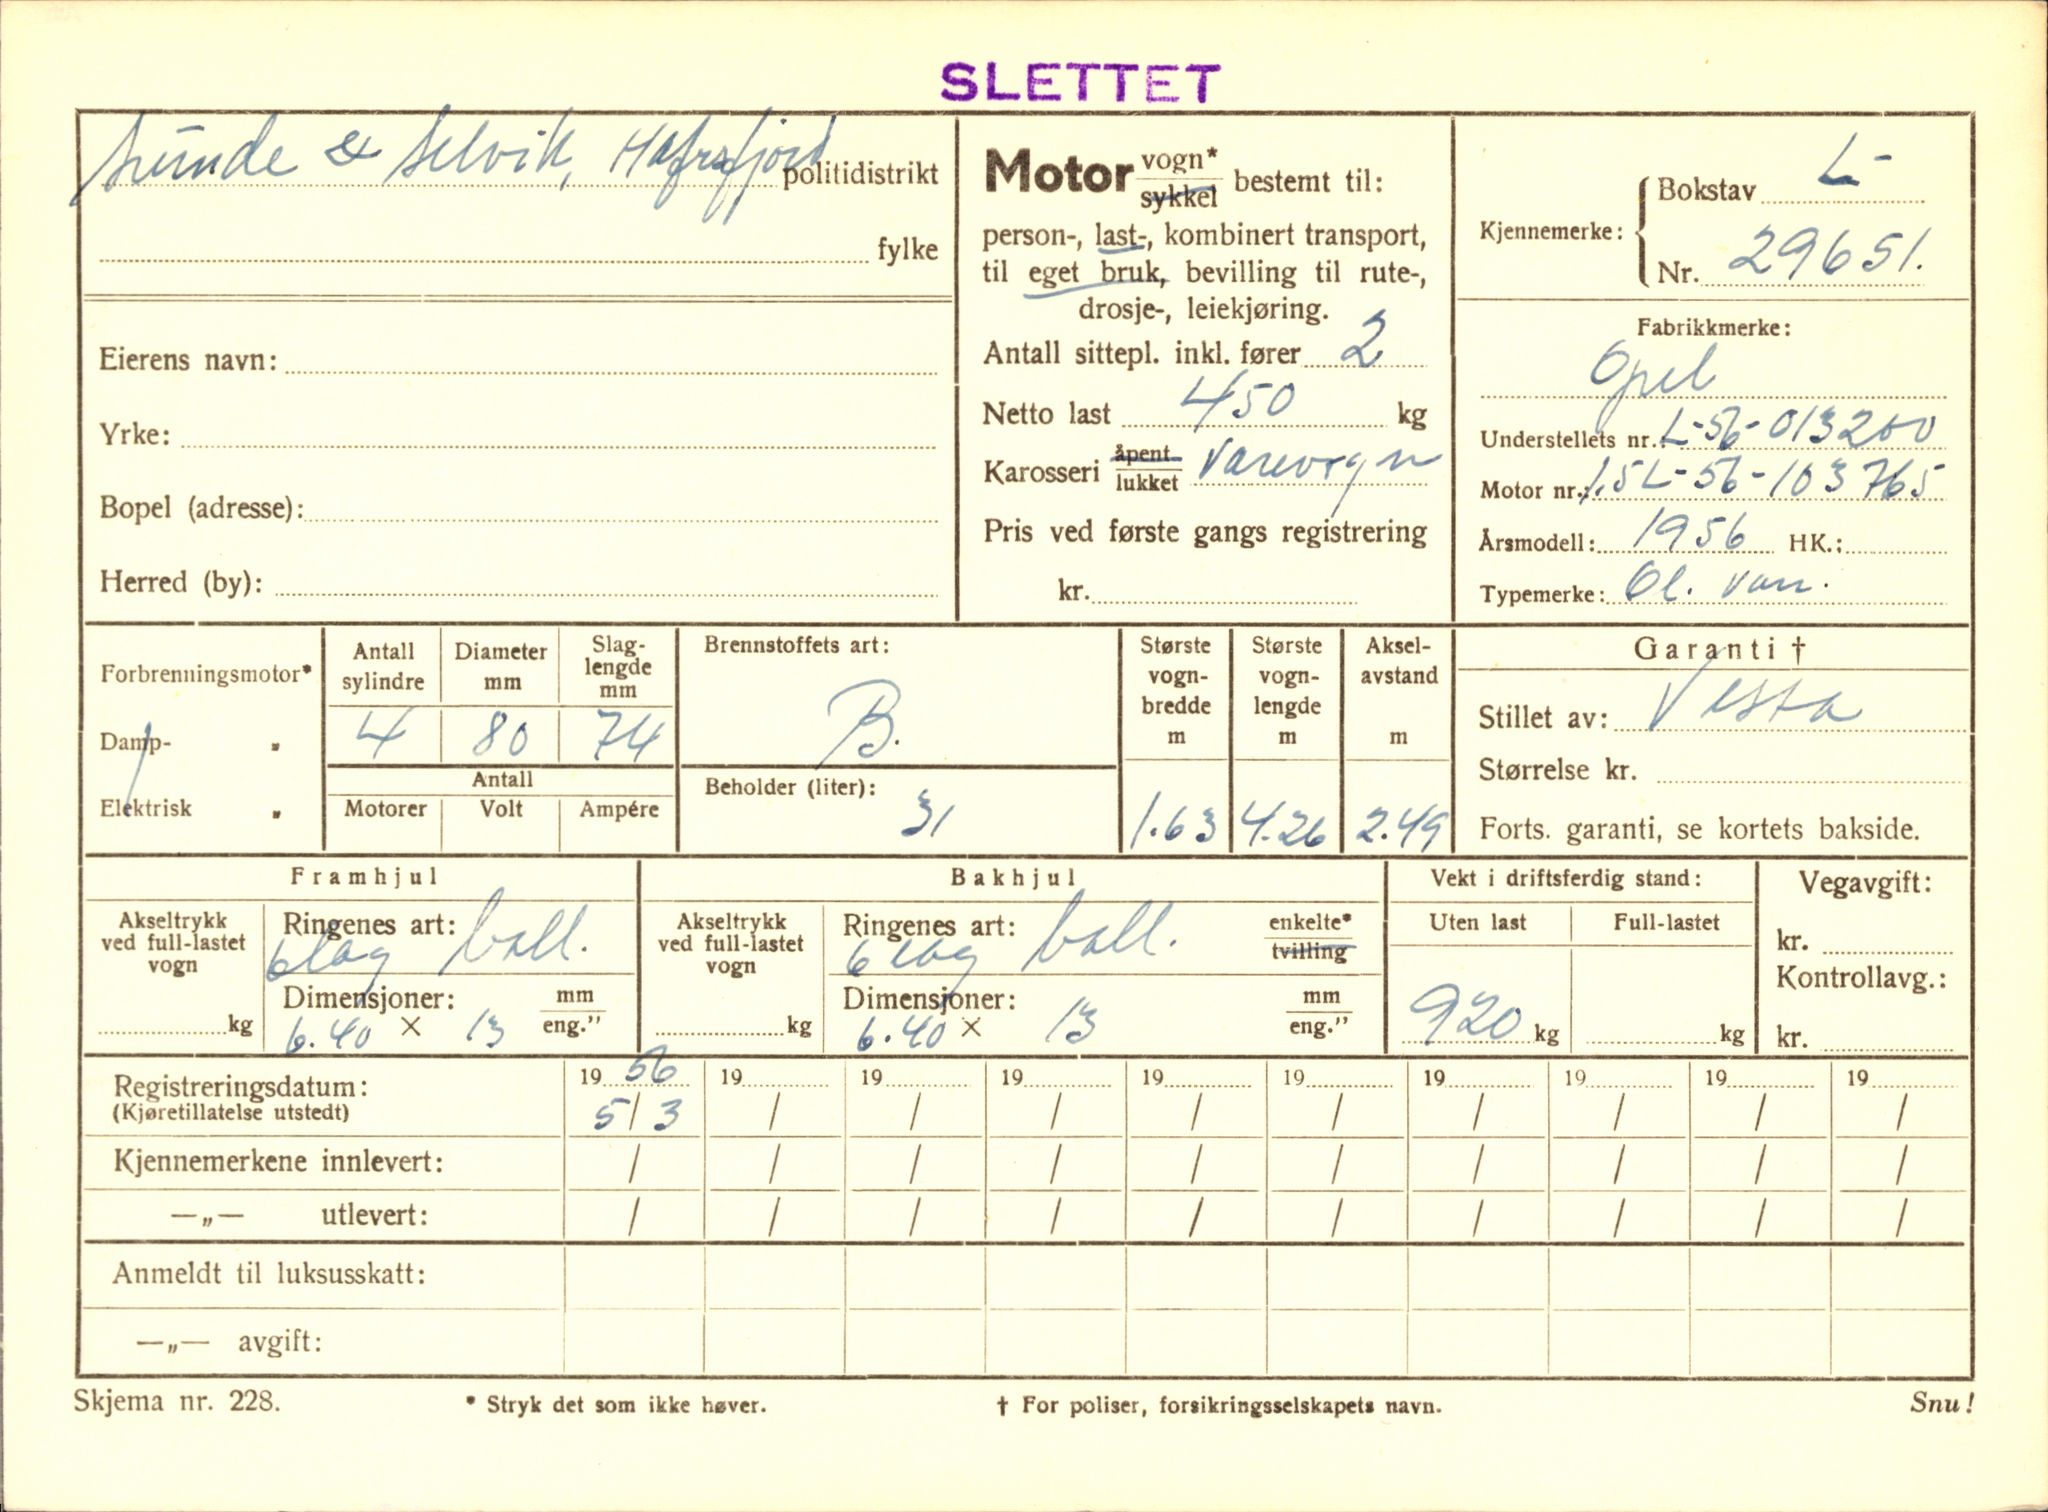 SLETTET
Sunde & Selvik, Hafrsfjord politidistrikt
fylke
Eierens navn:
Yrke:
Bopel (adresse):
Herred (by):
Motor vogn* sykkel bestemt til:
person-, last-, kombinert transport,
til eget bruk, bevilling til rute-,
drosje-, leiekjøring.
Antall sittepl. inkl. fører 2
Netto last 450 kg
Karosseri åpent lukket varevogn
Pris ved første gangs registrering
kr.
Kjennemerke: Bokstav L-
Nr. 29651.
Fabrikkmerke:
Opel
Understellets nr.: L-56-013200
Motor nr.: 1.5L-56-103765
Årsmodell: 1956 HK.:
Typemerke: Ol. van.
Forbrenningsmotor*
Damp- „
Elektrisk „
Antall sylindre Diameter mm Slag-lengde mm
4 80 74
Antall
Motorer Volt Ampére
Brennstoffets art:
B.
Beholder (liter):
31
Største vogn-bredde m Største vogn-lengde m Aksel-avstand m
1.63 4.26 2.49
Garanti †
Stillet av: Vesta
Størrelse kr.
Forts. garanti, se kortets bakside.
Framhjul
Akseltrykk ved full-lastet vogn
kg
Ringenes art:
6 lag ball.
Dimensjoner: mm eng."
6.40 × 13
Bakhjul
Akseltrykk ved full-lastet vogn
kg
Ringenes art: enkelte* tvilling
6 lag ball.
Dimensjoner: mm eng."
6.40 × 13
Vekt i driftsferdig stand:
Uten last Full-lastet
920 kg kg
Vegavgift:
kr.
Kontrollavg.:
kr.
Registreringsdatum: 19 56 19 19 19 19 19 19 19 19 19
(Kjøretillatelse utstedt) 5/3 / / / / / / / / /
Kjennemerkene innlevert: / / / / / / / / / /
—„— utlevert: / / / / / / / / / /
Anmeldt til luksusskatt:
—„— avgift:
Skjema nr. 228. * Stryk det som ikke høver. † For poliser, forsikringsselskapets navn. Snu!